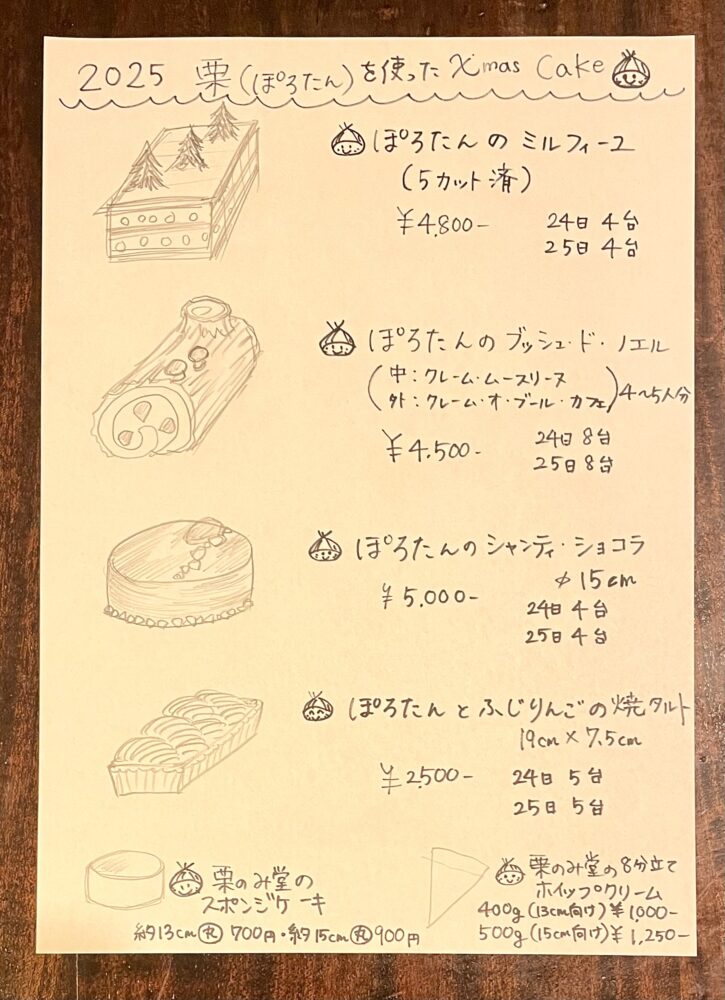 2025 栗(ぽろたん)を使った Xmas Cake
ぽろたんのミルフィーユ
(5カット済)
¥4,800-
24日 4台
25日 4台
ぽろたんのブッシュ・ド・ノエル
(中:クレーム・ムースリーヌ
外:クレーム・オ・ブール・カフェ)4~5人分
¥4,500-
24日 8台
25日 8台
ぽろたんのシャンティ・ショコラ
φ15cm
¥5,000-
24日 4台
25日 4台
ぽろたんとふじりんごの焼タルト
19cm×7.5cm
¥2,500-
24日 5台
25日 5台
栗のみ堂の
スポンジケーキ
約13cm㊀ 700円・約15cm㊀ 900円
栗のみ堂の8分立て
ホイップクリーム
400g(13cm向け)¥1,000-
500g(15cm向け)¥1,250-